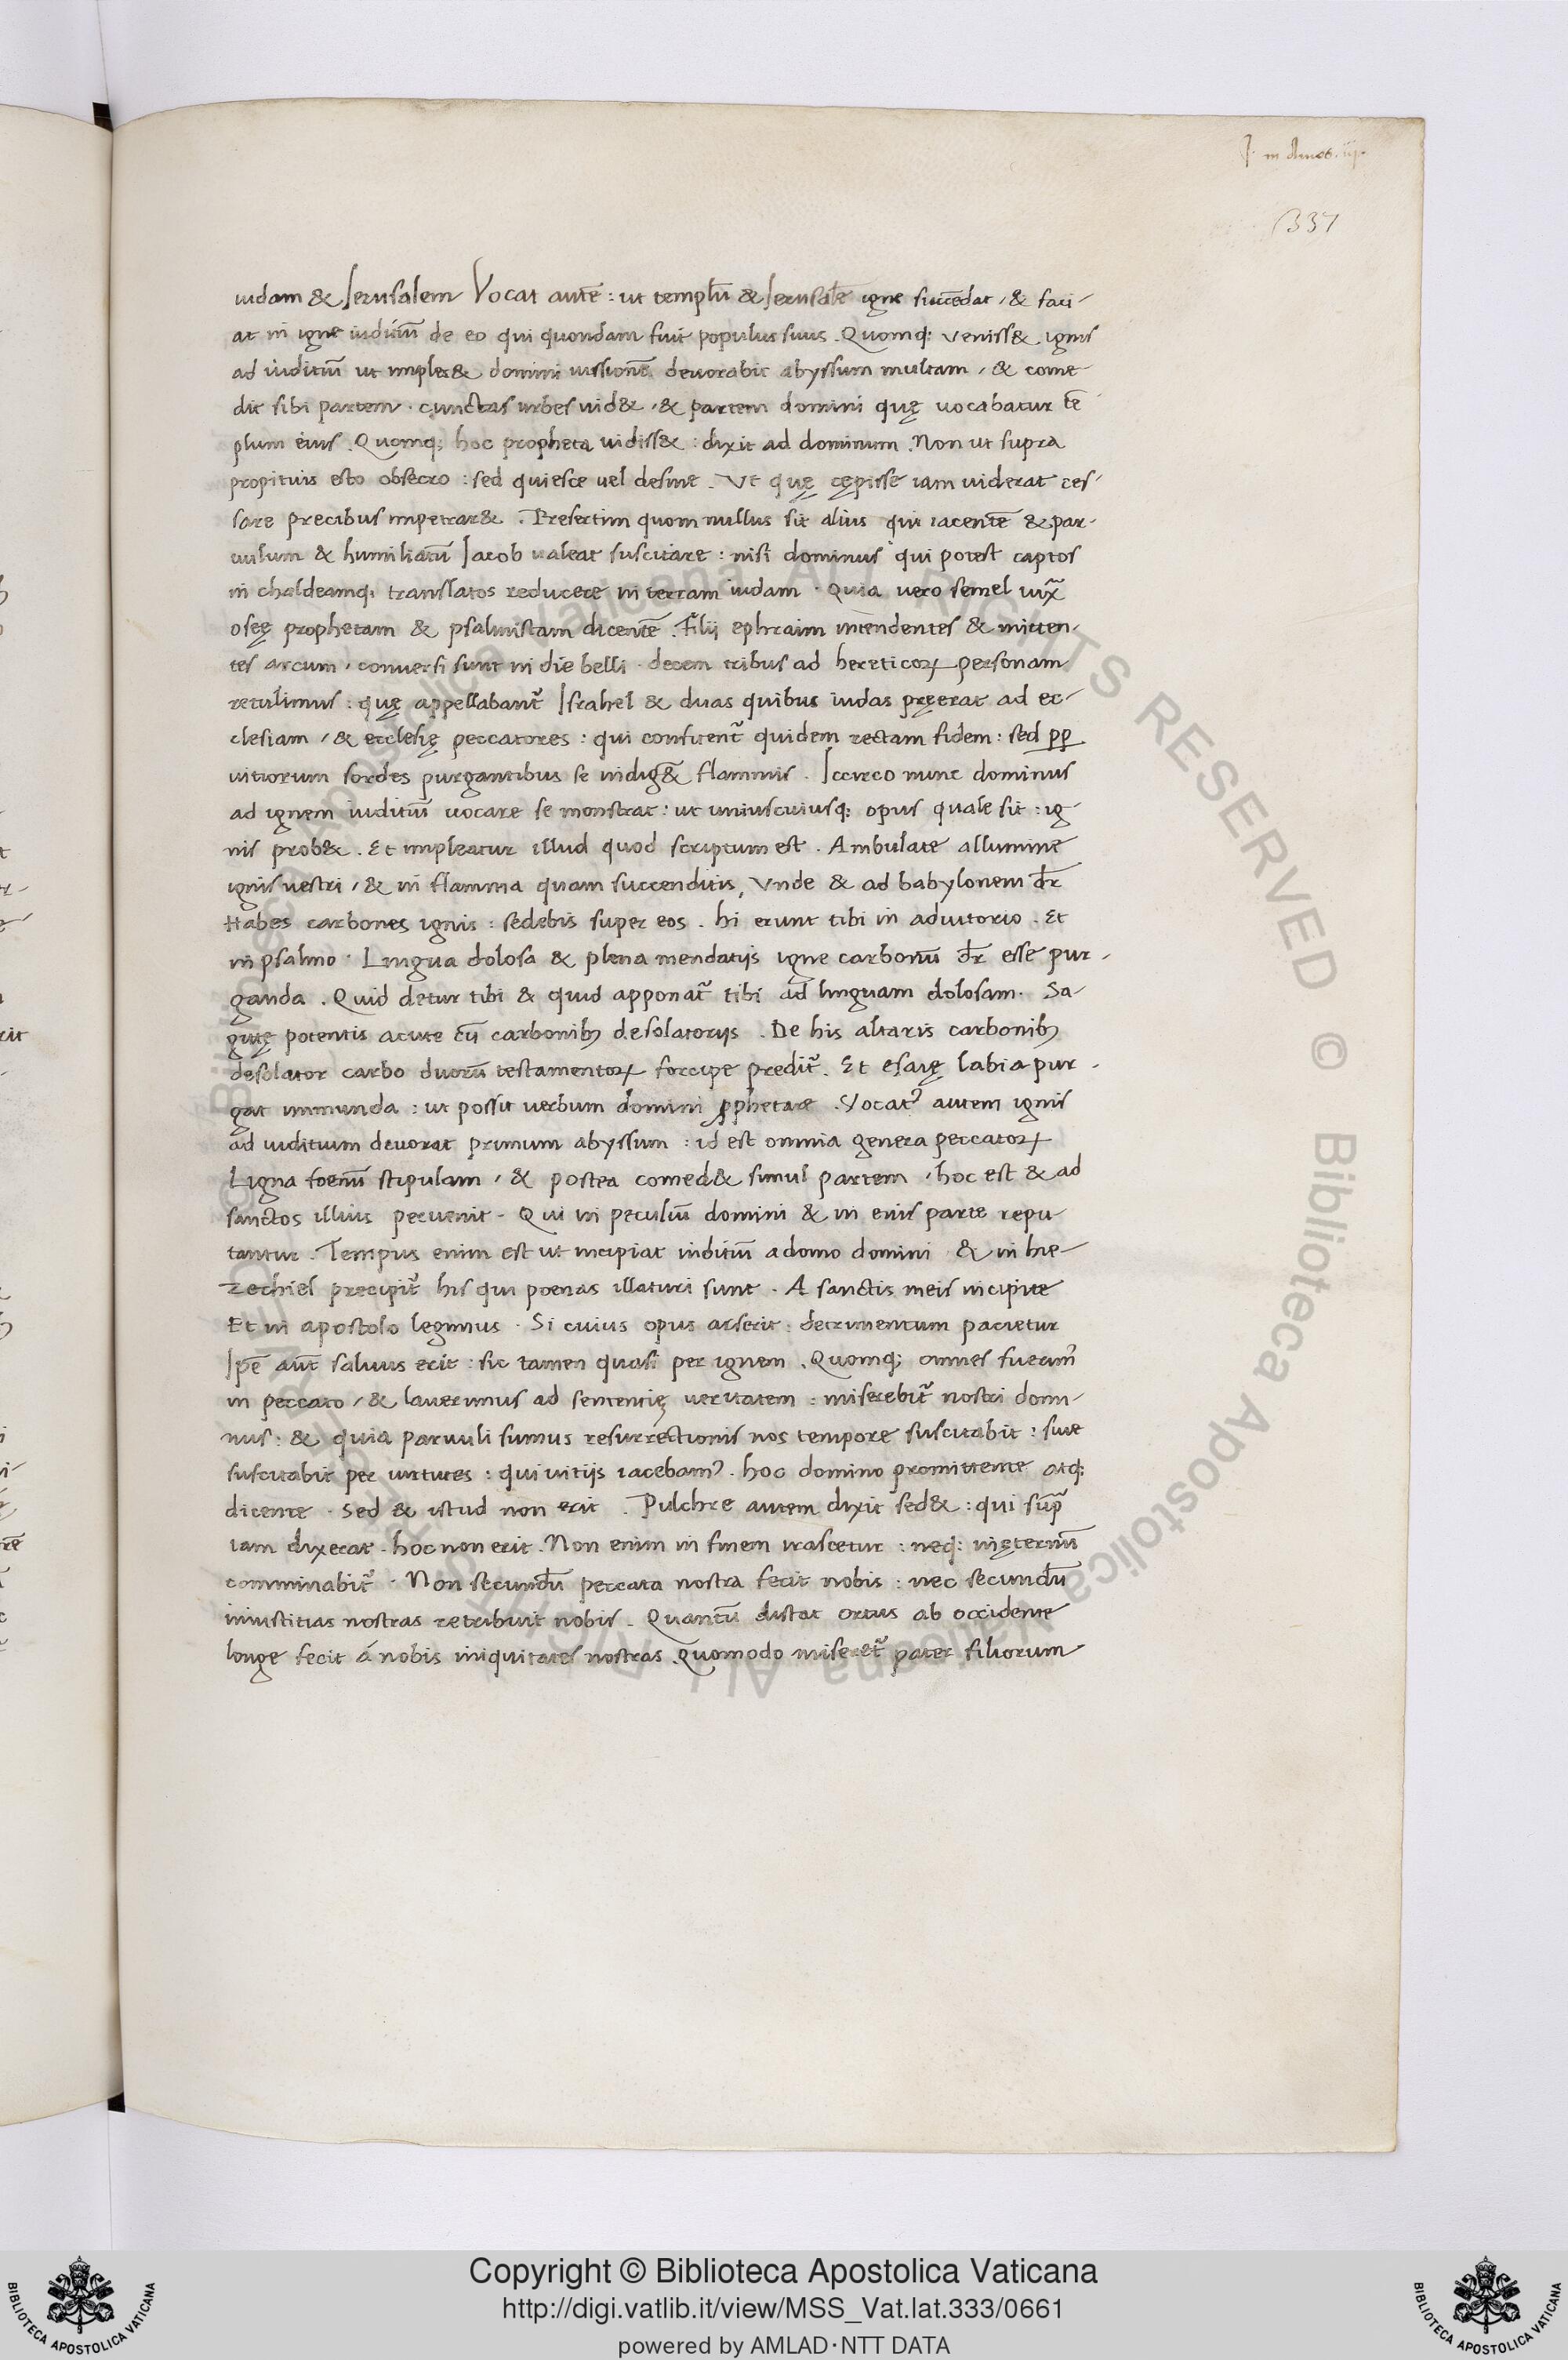 J. in Amos. iij.
337
iudam & Ierusalem Vocat autē : ut templū & Ierusalē igne succēdat / & faci-
at in igne iuditiū de eo qui quondam fuit populus suus . Quomq; veniss& ignis
ad iuditiū ut imples& domini iussionē devorabit abyssum multam / & come
dit sibi partem . cunctas urbes uid& / & partem domini quę vocabatur tē
plum eius . Quomq; hoc propheta uidiss& : dixit ad dominum . Non ut supra
propitius esto obsecro : sed quiesce uel desine . Ut quę cępisse iam viderat ces-
sare precibus impetrar& . Presertim quom nullus sit alius qui iacentē & par-
uulum & humiliatū Iacob ualeat suscitare : nisi dominus qui potest captos
in chaldeamq; translatos reducere in terram iudam . Quia vero semel iuxͣ
oseę prophetam & psalmistam dicentē . Filij ephraim intendentes & mitten-
tes arcum / conversi sunt in die belli . decem tribus ad hereticoꝝ personam
retulimus : quę appellabant᷑ Israhel & duas quibus iudas pręerat ad ec-
clesiam / & ecclesię peccatores : qui confitent᷑ quidem rectam fidem : sed ꝑꝑ
uitiorum sordes purgantibus se indig& flammis . Iccirco nunc dominus
ad ignem iuditiū vocare se monstrat : ut uniuscuiusq; opus quale sit : ig-
nis prob& . Et impleatur illud quod scriptum est . Ambulate allumine
ignis vestri / & in flamma quam succenditis, Vnde & ad babylonem dr̄
Habes carbones ignis : sedebis super eos . hi erunt tibi in adiutorio . Et
in psalmo . Lingua dolosa & plena mendatijs igne carbonū dr̄ esse pur-
ganda . Quid detur tibi & quid apponat᷑ tibi ad linguam dolosam . Sa-
gittę potentis acute cū carbonibꝫ desolatorijs . De his altaris carbonibꝫ
desolator carbo duorū testamentoꝝ forcipe predit᷑ . Et esaię labia pur-
gat immunda : ut possit verbum domini ꝓphetare . Vocat᷑ autem ignis
ad iuditium devorat primum abyssum : id est omnia genera peccatoꝝ
Ligna foenū stipulam / & postea comed& simul partem / hoc est & ad
sanctos illius pervenit . Qui in peculiū domini & in eius parte repu
tantur . Tempus enim est ut incipiat iuditiū a domo domini . & in hie-
zechiel precipit᷑ his qui poenas illaturi sunt . A sanctis meis incipite
Et in apostolo legimus . Si cuius opus arserit : detrimentum patietur
Ipē aūt saluus erit : sic tamen quasi per ignem . Quomq; omnes fuerim᷒
in peccato / & laverimus ad sententię veritatem : miserebit᷑ nostri domi-
nus : & quia parvuli sumus resurrectionis nos tempore suscitabit : sive
suscitabit per virtutes : qui vitijs iacebam᷒ . hoc domino promittente atq;
dicente . Sed & istud non erit . Pulchre autem dixit sed& : qui supͣ
iam dixerat . hoc non erit . Non enim in finem irascetur : neq; inęternū
comminabit᷑ . Non secundū peccata nostra fecit nobis : nec secundū
iniustitias nostras retribuit nobis . Quantū distat ortus ab occidente
longe fecit á nobis iniquitates nostras . Quomodo miseret᷑ pater filiorum
© Biblioteca Apostolica Vaticana ALL RIGHTS RESERVED © Biblioteca Apostolica Vaticana ALL RIGHTS RESERVED
Copyright © Biblioteca Apostolica Vaticana
http://digi.vatlib.it/view/MSS_Vat.lat.333/0661
powered by AMLAD·NTT DATA
BIBLIOTECA APOSTOLICA VATICANA
BIBLIOTECA APOSTOLICA VATICANA